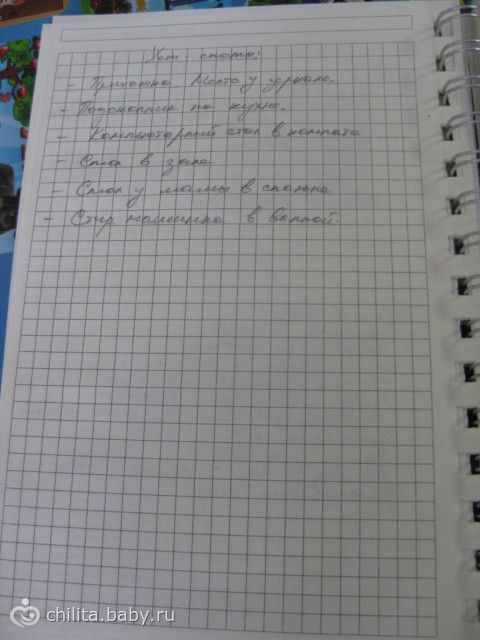 Хот-споты:
- Прихожка. Место у зеркала.
- Подоконник на кухне.
- Компьютерный стол в комнате
- Стол в зале
- Стол у мамы в спальне
- Стир. машинка в ванной.
chilita.baby.ru